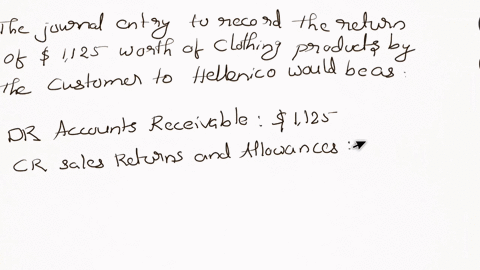 The journal entry to record the return
of $1,125 worth of Clothing products by
the Customer to Hellenico would be as:
DR Accounts Receivable: $1,125
CR Sales Returns and Allowances: